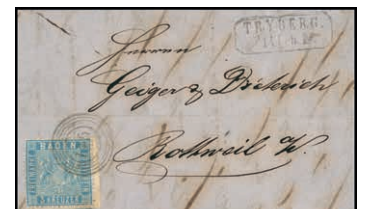 TRYBERG.
Herren
Geiger & Dieterich
Rottweil a/N.
BADEN
3 KREUZER